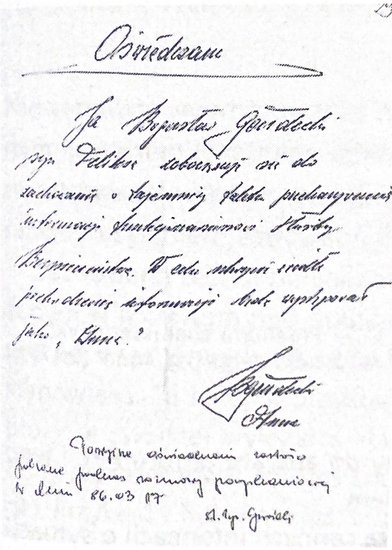 Oświadczam
Ja Bogusław
syn Feliksa zobowiązuję się do
zachowania w tajemnicy faktu przekazywania
informacji funkcjonariuszowi Służby
Bezpieczeństwa. W celu ukrycia źródła
pochodzenia informacji będę występował
jako „
Powyższe oświadczenie zostało
pobrane podczas rozmowy pozyskaniowej
w dniu 86.03.17